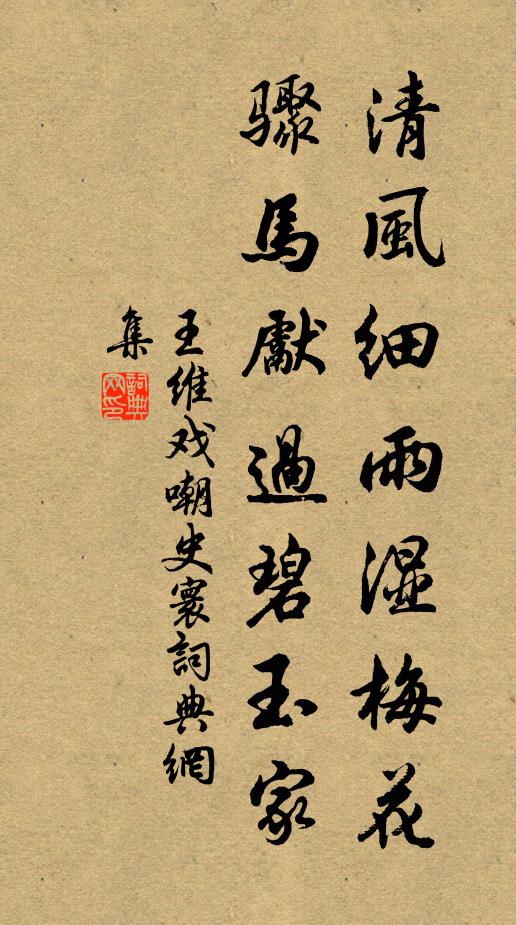 清風細雨湿梅花
驟馬獻過碧玉家
王維戏嘲史寰詞典網
集
詞典
网印